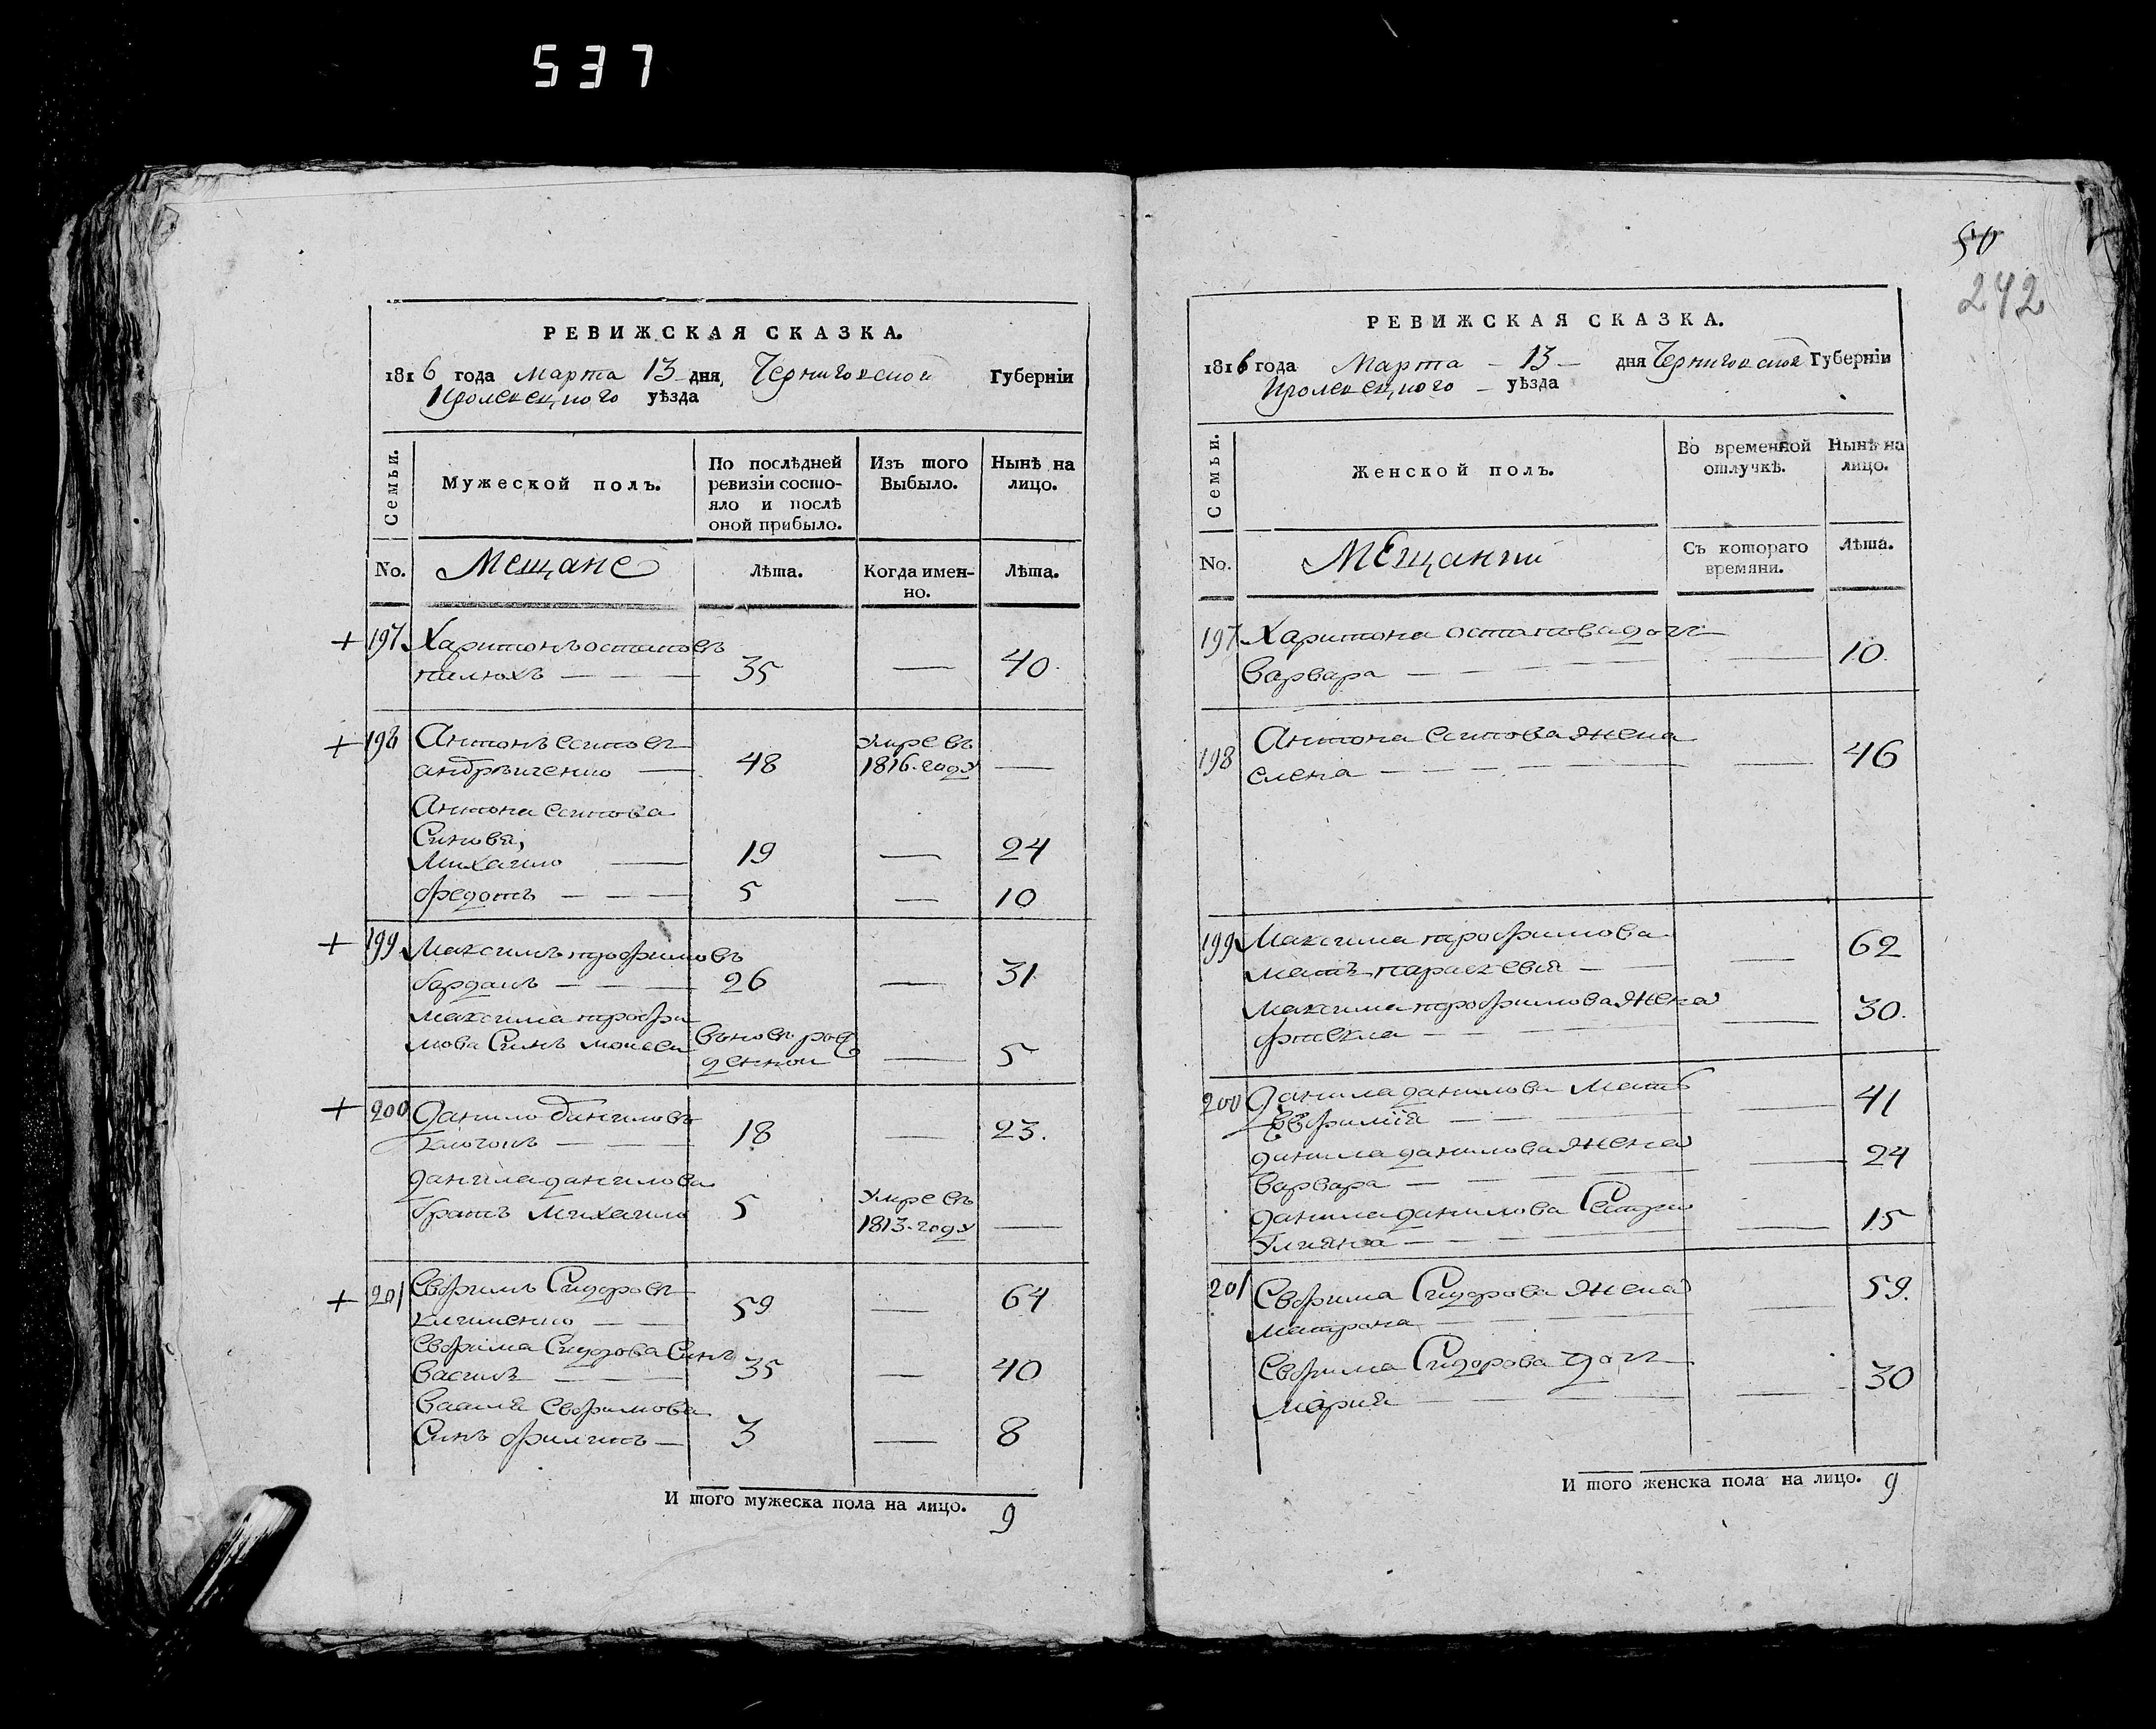 537
РЕВИЖСКАЯ СКАЗКА.
1816 года Марта 13 дня, Черниговской Губерніи
Кролевецкого уѣзда
Семьи.
Мужеской полъ.
По послѣдней ревизіи состо-
яло и послѣ
оной прибыло.
Изъ того
Выбыло.
Нынѣ на
лицо.
No.
Мещане
Лѣта.
Когда имен-
но.
Лѣта.
+ 197 Харитонъ остаповъ
35 — 40.
+ 198 Антонъ есиповъ
андрѣиченко — 48 — умре въ 1816. году —
Антона есипова
Синовя,
Михаило — 19 — 24
Федотъ — — — 5 — 10
+ 199 Максимъ трофимовъ
бардашъ — — — 26 — 31
Максима трофи
мова Синъ моисеи вновь рож
деннои — 5
+ 200 Данило даниловъ
— — — 18 — 23.
данила данилова
братъ Михаило 5 умре въ
1813. году —
+ 201 Євфимъ Сидоровъ
клименко — — 59 — 64
Євфима Сидорова Синъ
василь — — 35 — 40
василя євфимова
Синъ филипъ — 3 — 8
И того мужеска пола на лицо. 9
50
242
РЕВИЖСКАЯ СКАЗКА.
1816 года Марта — 13 — дня Черниговской Губерніи
Кролевецкого — уѣзда
Семьи.
Женской полъ.
Во временной
отлучкѣ.
Нынѣ на
лицо.
No.
Мещанки
Съ котораго
времяни.
Лѣта.
197 Харитона остапова дочь
варвара — — — — 10.
198 Антона есипова жена
елена — — — — 46
199 Максима трофимова
мать параскевия — — 62
Максима трофимова жена
фтекла — — — 30.
200 Данила данилова Мать
Євфимія — — — 41
данила данилова жена
варвара — — — — 24
данила данилова Сестра
Улияна — — — — 15
201 Євфима Сидорова жена
матрона — — — — 59.
Євфима Сидорова дочь
Мария — — — 30
И того женска пола на лицо. 9